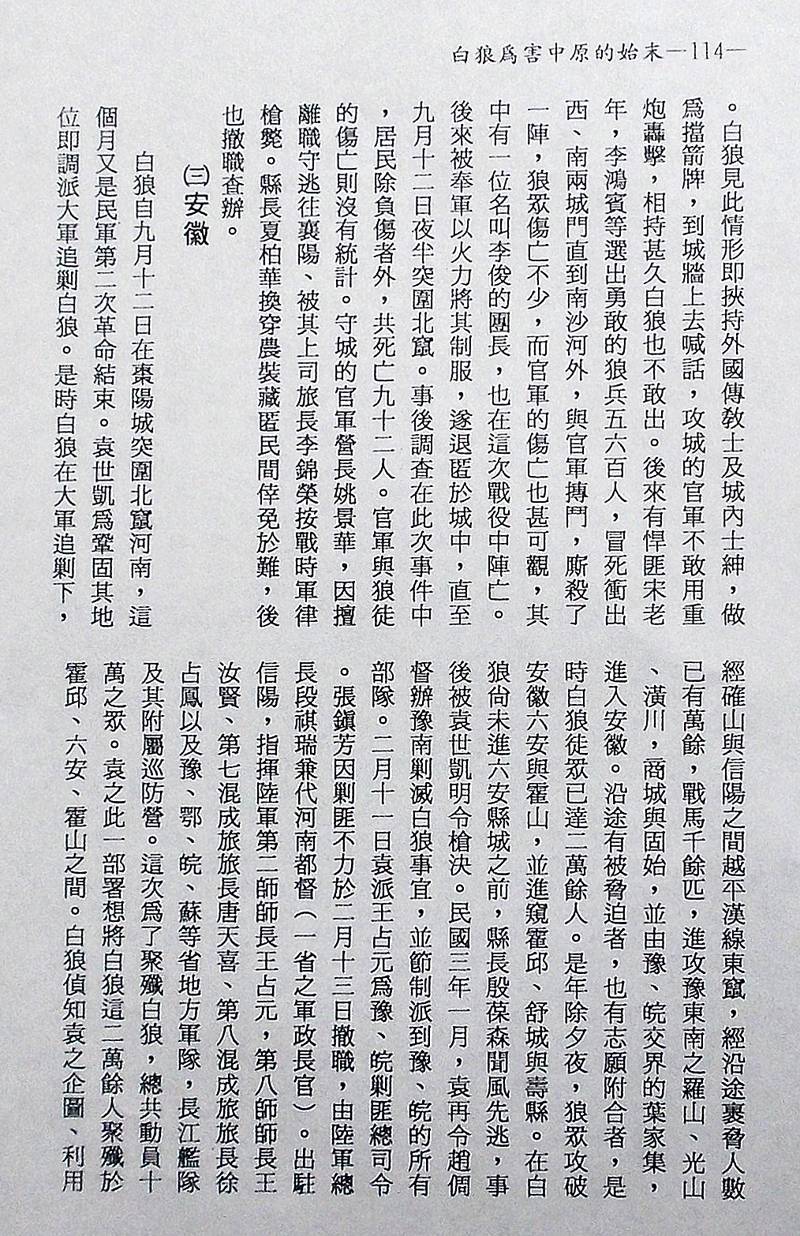 白狼爲害中原的始末—114—
。白狼見此情形即挾持外國傳教士及城內士紳，做
爲擋箭牌，到城牆上去喊話，攻城的官軍不敢用重
炮轟擊，相持甚久白狼也不敢出。後來有悍匪宋老
年，李鴻賓等選出勇敢的狼兵五六百人，冒死衝出
西、南兩城門直到南沙河外，與官軍搏鬥，廝殺了
一陣，狼眾傷亡不少，而官軍的傷亡也甚可觀，其
中有一位名叫李俊的團長，也在這次戰役中陣亡。
後來被奉軍以火力將其制服，遂退匿於城中，直至
九月十二日夜半突圍北竄。事後調查在此次事件中
，居民除負傷者外，共死亡九十二人。官軍與狼徒
的傷亡則沒有統計。守城的官軍營長姚景華，因擅
離職守逃往襄陽、被其上司旅長李錦榮按戰時軍律
槍斃。縣長夏柏華換穿農裝藏匿民間倖免於難，後
也撤職查辦。
㈢安徽
白狼自九月十二日在棗陽城突圍北竄河南，這
個月又是民軍第二次革命結束。袁世凱爲鞏固其地
位即調派大軍追剿白狼。是時白狼在大軍追剿下，
經確山與信陽之間越平漢線東竄，經沿途裹脅人數
已有萬餘，戰馬千餘匹，進攻豫東南之羅山、光山
、潢川，商城與固始，並由豫、皖交界的葉家集，
進入安徽。沿途有被脅迫者，也有志願附合者，是
時白狼徒眾已達二萬餘人。是年除夕夜，狼眾攻破
安徽六安與霍山，並進窺霍邱、舒城與壽縣。在白
狼尚未進六安縣城之前，縣長殷葆森聞風先逃，事
後被袁世凱明令槍決。民國三年一月，袁再令趙倜
督辦豫南剿滅白狼事宜，並節制派到豫、皖的所有
部隊。二月十一日袁派王占元爲豫、皖剿匪總司令
。張鎮芳因剿匪不力於二月十三日撤職，由陸軍總
長段祺瑞兼代河南都督（一省之軍政長官）。出駐
信陽，指揮陸軍第二師師長王占元，第八師師長王
汝賢、第七混成旅旅長唐天喜、第八混成旅旅長徐
占鳳以及豫、鄂、皖、蘇等省地方軍隊，長江艦隊
及其附屬巡防營。這次爲了聚殲白狼，總共動員十
萬之眾。袁之此一部署想將白狼這二萬餘人聚殲於
霍邱、六安、霍山之間。白狼偵知袁之企圖、利用